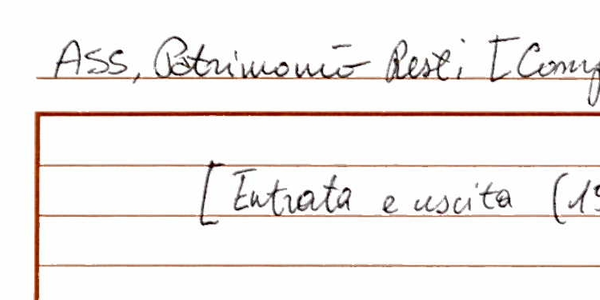 ASS, Patrimonio Resti [Comp
[Entrata e uscita (15